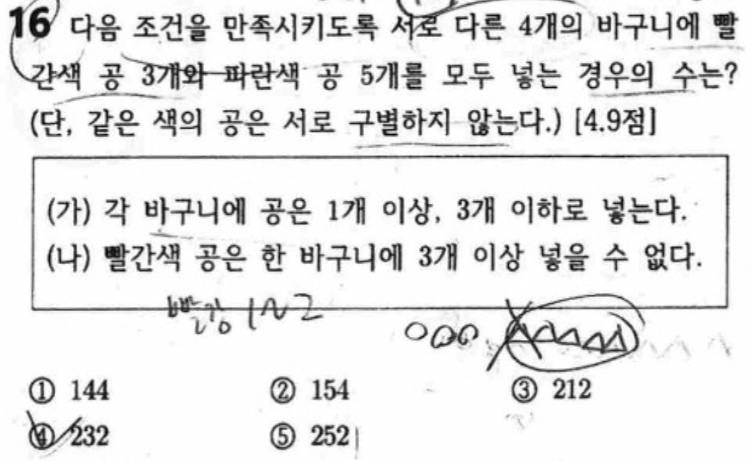 16 다음 조건을 만족시키도록 서로 다른 4개의 바구니에 빨
간색 공 3개와 파란색 공 5개를 모두 넣는 경우의 수는?
(단, 같은 색의 공은 서로 구별하지 않는다.) [4.9점]
(가) 각 바구니에 공은 1개 이상, 3개 이하로 넣는다.
(나) 빨간색 공은 한 바구니에 3개 이상 넣을 수 없다.
빨강 1~2
① 144 ② 154 ③ 212
④ 232 ⑤ 252